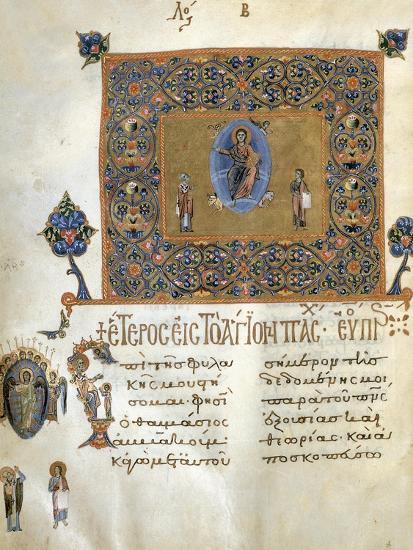 Λόγ Β
ἕτερος εἰς τὸ ἅγιον πάσχα·
ἐπὶ τῆς φυλα
κῆς μου στή
σομαι φησὶ
ὁ θαυμάσιος
ἀμβακούμ
κἀγὼ μετ' αὐτοῦ
σήμερον τῆς
δεδομένης μοι
παρὰ τοῦ πνς
ἐξουσίας καὶ
θεωρίας· καὶ ἀ
ποσκοπεύσω